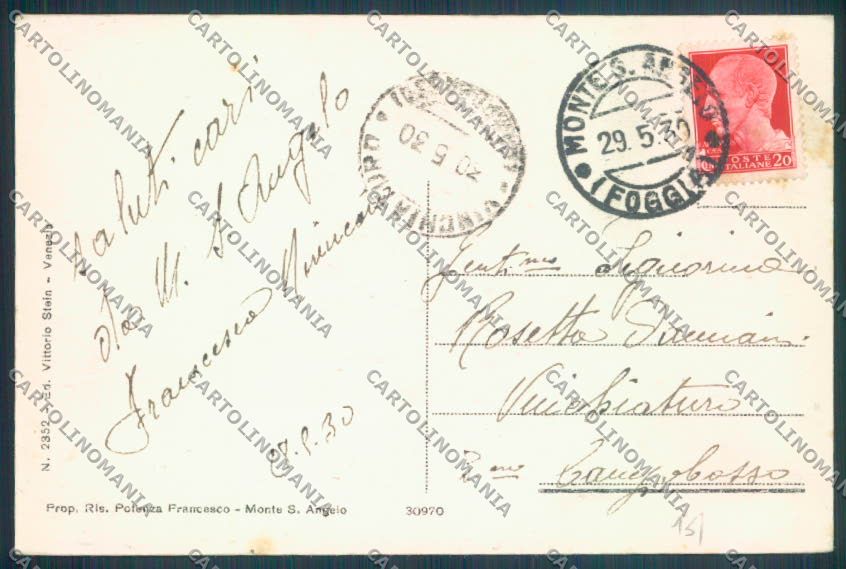 Saluti cari
da M. S. Angelo
Francesco
28.5.30
N. 2352 - Ed. Vittorio Stein - Venezia
Prop. Ris. Potenza Francesco - Monte S. Angelo
30970
VINCHIATURO
30 5 30
MONTE S. ANGELO
29. 5. 30
(FOGGIA)
POSTE
ITALIANE
20
Gent.ma Signorina
Rosetta Damiani
Vinchiaturo
Campobasso
CARTOLINOMANIA